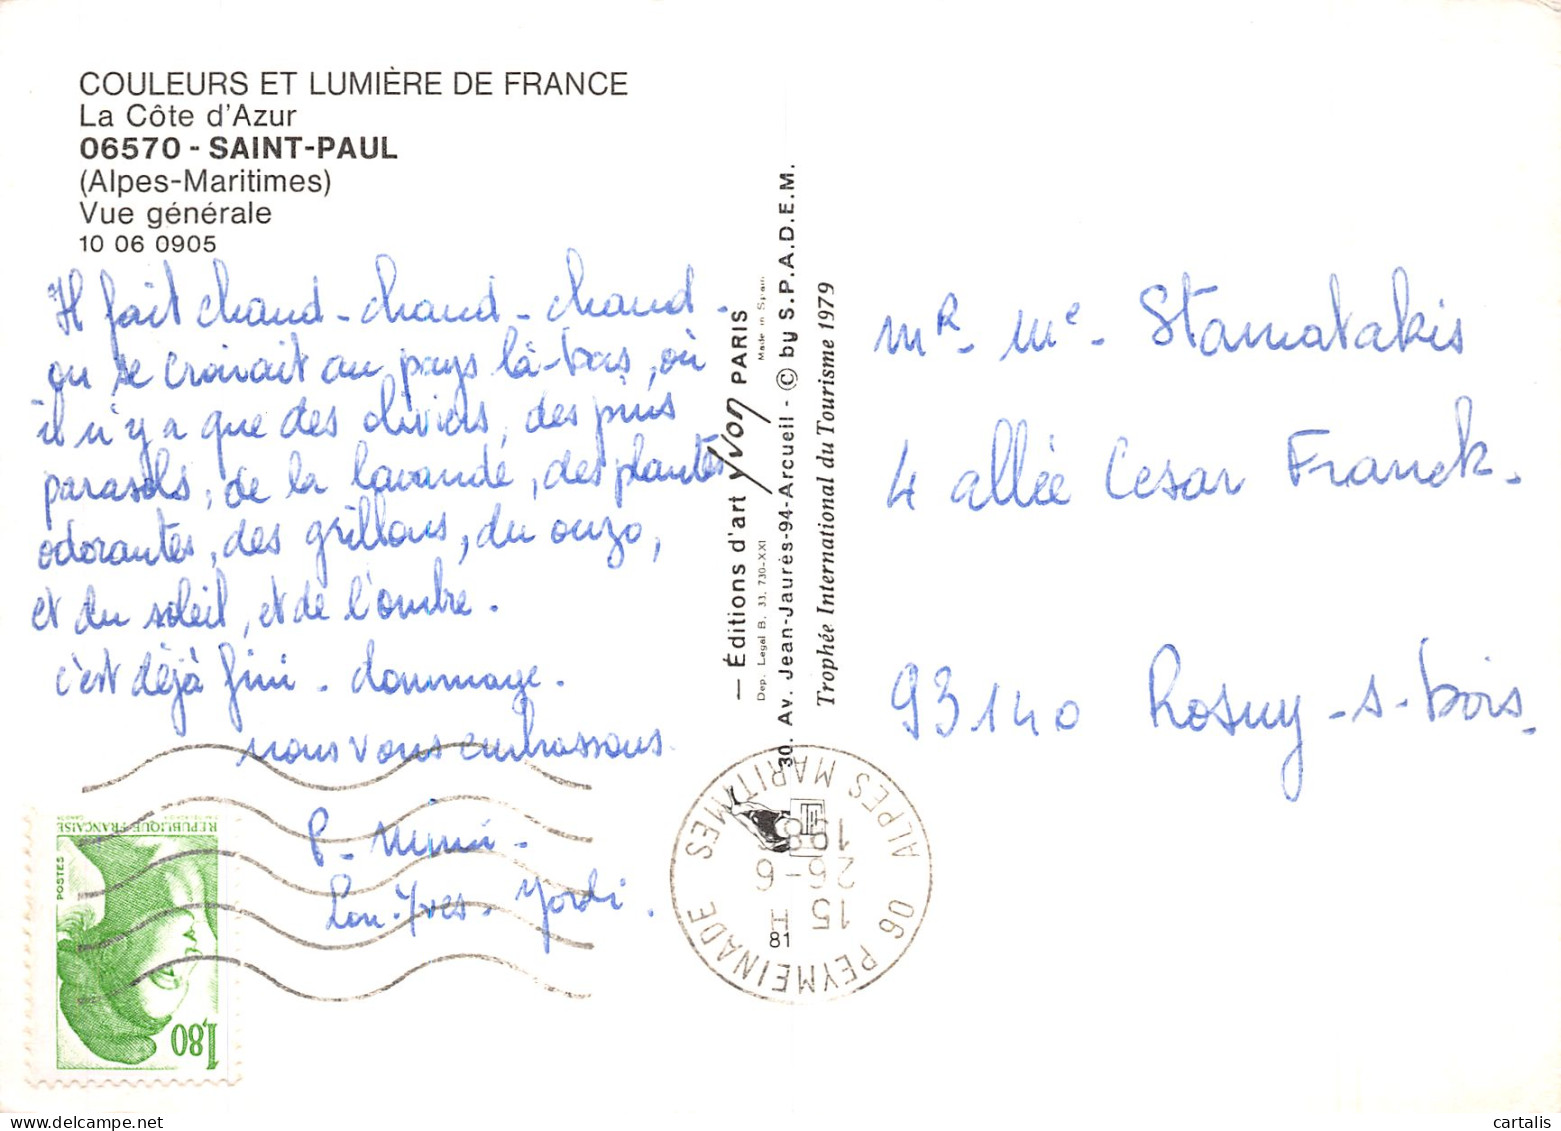 COULEURS ET LUMIÈRE DE FRANCE
La Côte d'Azur
06570 - SAINT-PAUL
(Alpes-Maritimes)
Vue générale
10 06 0905
Il fait chaud - chaud - chaud -
on se croirait au pays là-bas, où
il n'y a que des oliviers, des pins
parasols, de la lavande, des plantes
odorantes, des grillons, du ouzo,
et du soleil, et de l'ombre.
c'est déjà fini - dommage.
nous vous embrassons.
P - Mimi -
Lou-Yves - Jordi.
— Éditions d'art Yvon PARIS
Dep. Legal B. 33. 730-XXI
Made in Spain
30. Av. Jean-Jaurès-94-Arcueil - © by S.P.A.D.E.M.
Trophée International du Tourisme 1979
Mr - Me - Stamatakis
4 allée Cesar Franck.
93140 Rosny-s-bois.
06 PEYMEINADE
ALPES MARITIMES
15 H
26-6
198
81
REPUBLIQUE FRANÇAISE
POSTES
1,80
cartalis